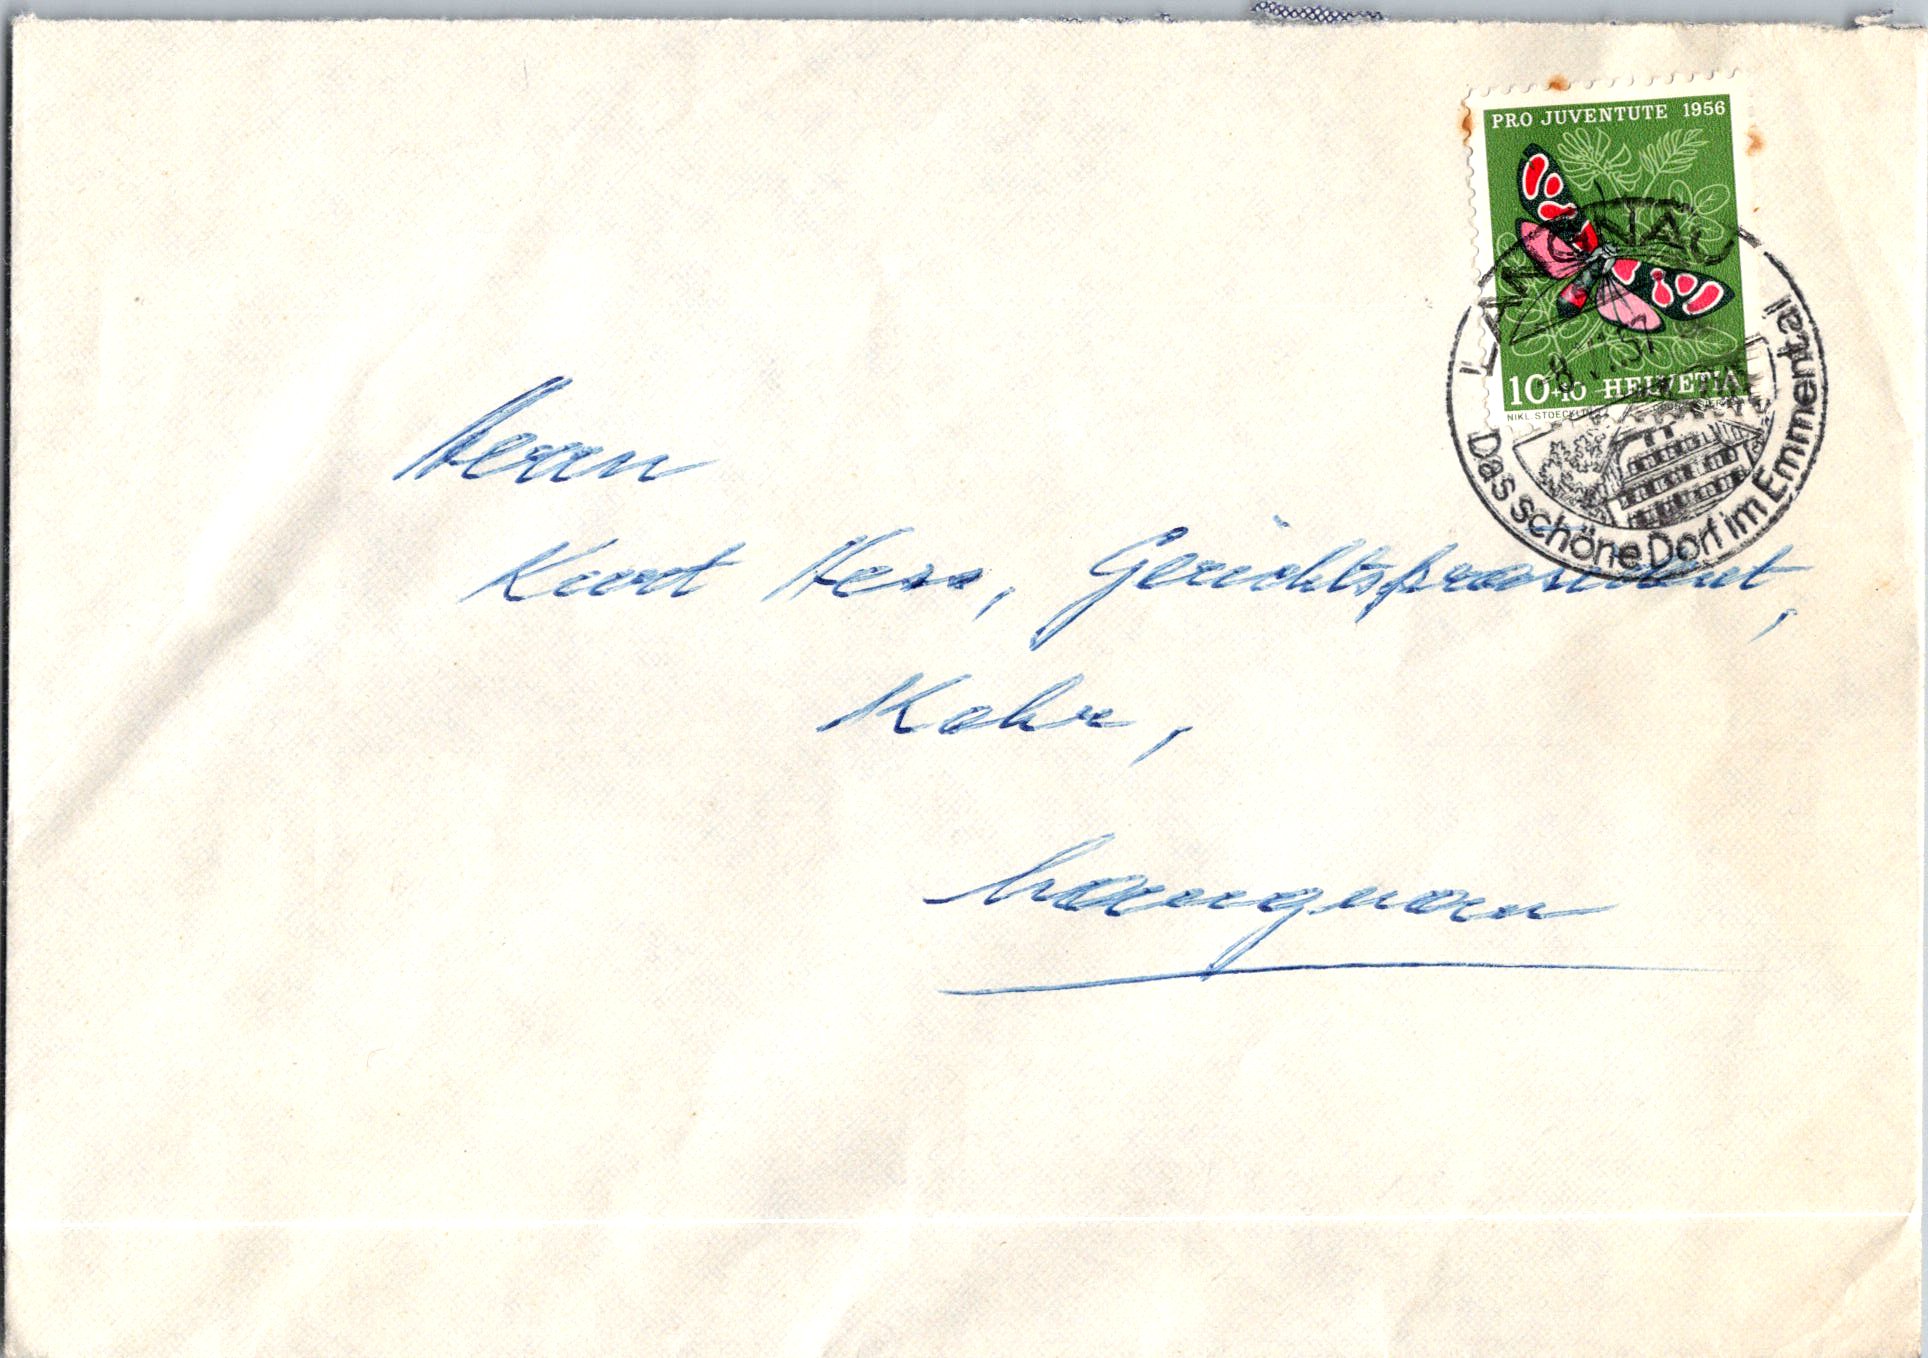 PRO JUVENTUTE 1956
10+10 HELVETIA
NIKL. STOECKLIN
LANGNAU
Das schöne Dorf im Emmental
Herrn
Kurt Hess, Gerichtspräsident,
Langnau